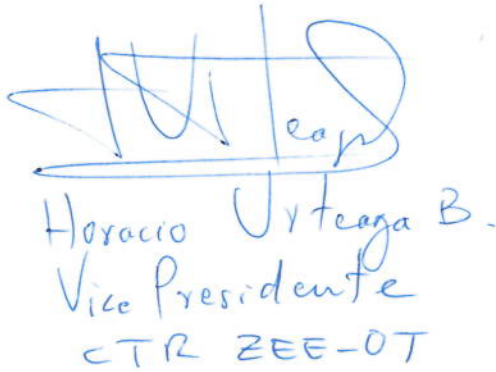 Horacio Urteaga B.
Vice Presidente
CTR ZEE-OT